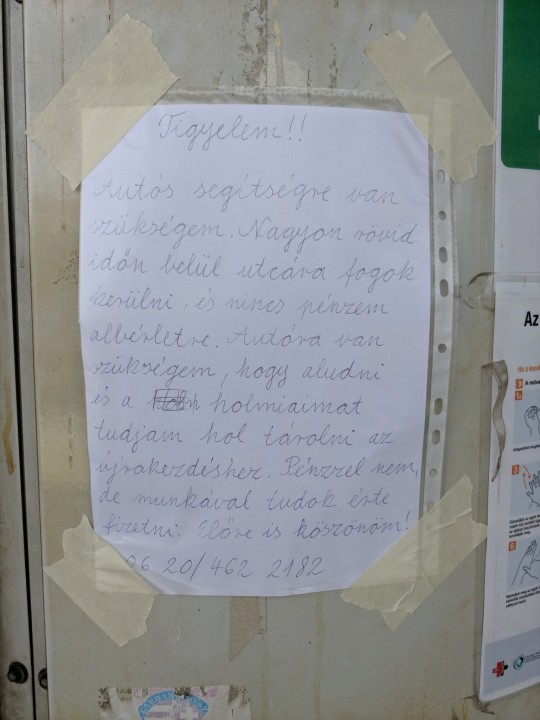 Figyelem!!
Autós segítségre van
szükségem. Nagyon rövid
időn belül utcára fogok
kerülni, és nincs pénzem
albérletre. Autóra van
szükségem, hogy aludni
és a holmiaimat
tudjam hol tárolni az
újrakezdéshez. Pénzzel nem,
de munkával tudok érte
fizetni. Előre is köszönöm!
06 20/462 2182
Az